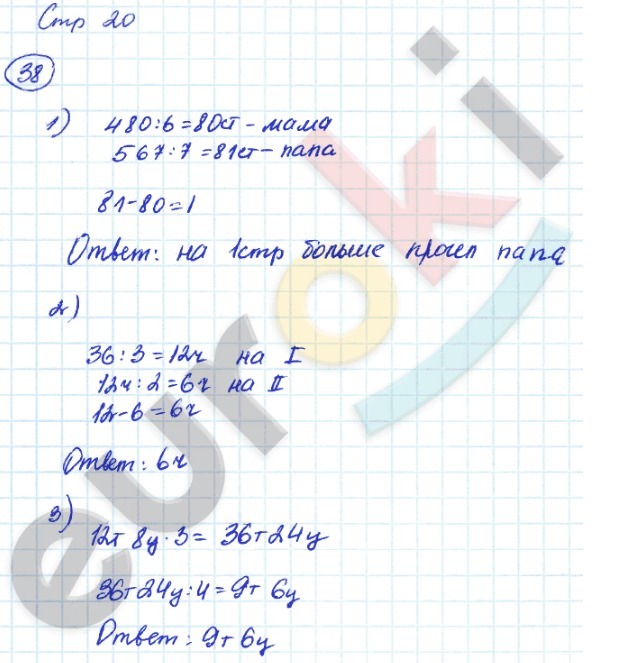 Стр 20
38
1) 480:6=80ст - мама
567:7=81ст - папа
81-80=1
Ответ: на 1стр больше прочел папа
2)
36:3=12ч на I
12ч:2=6ч на II
12-6=6ч
Ответ: 6ч
3)
12т 8ц·3= 36т24ц
36т24ц:4=9т 6ц
Ответ: 9т 6ц
euroki